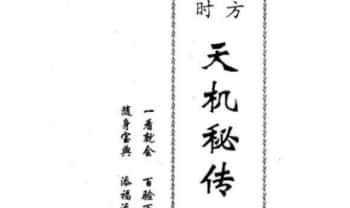 方
时
天机秘传
一看就会 百验
随身宝典 添福